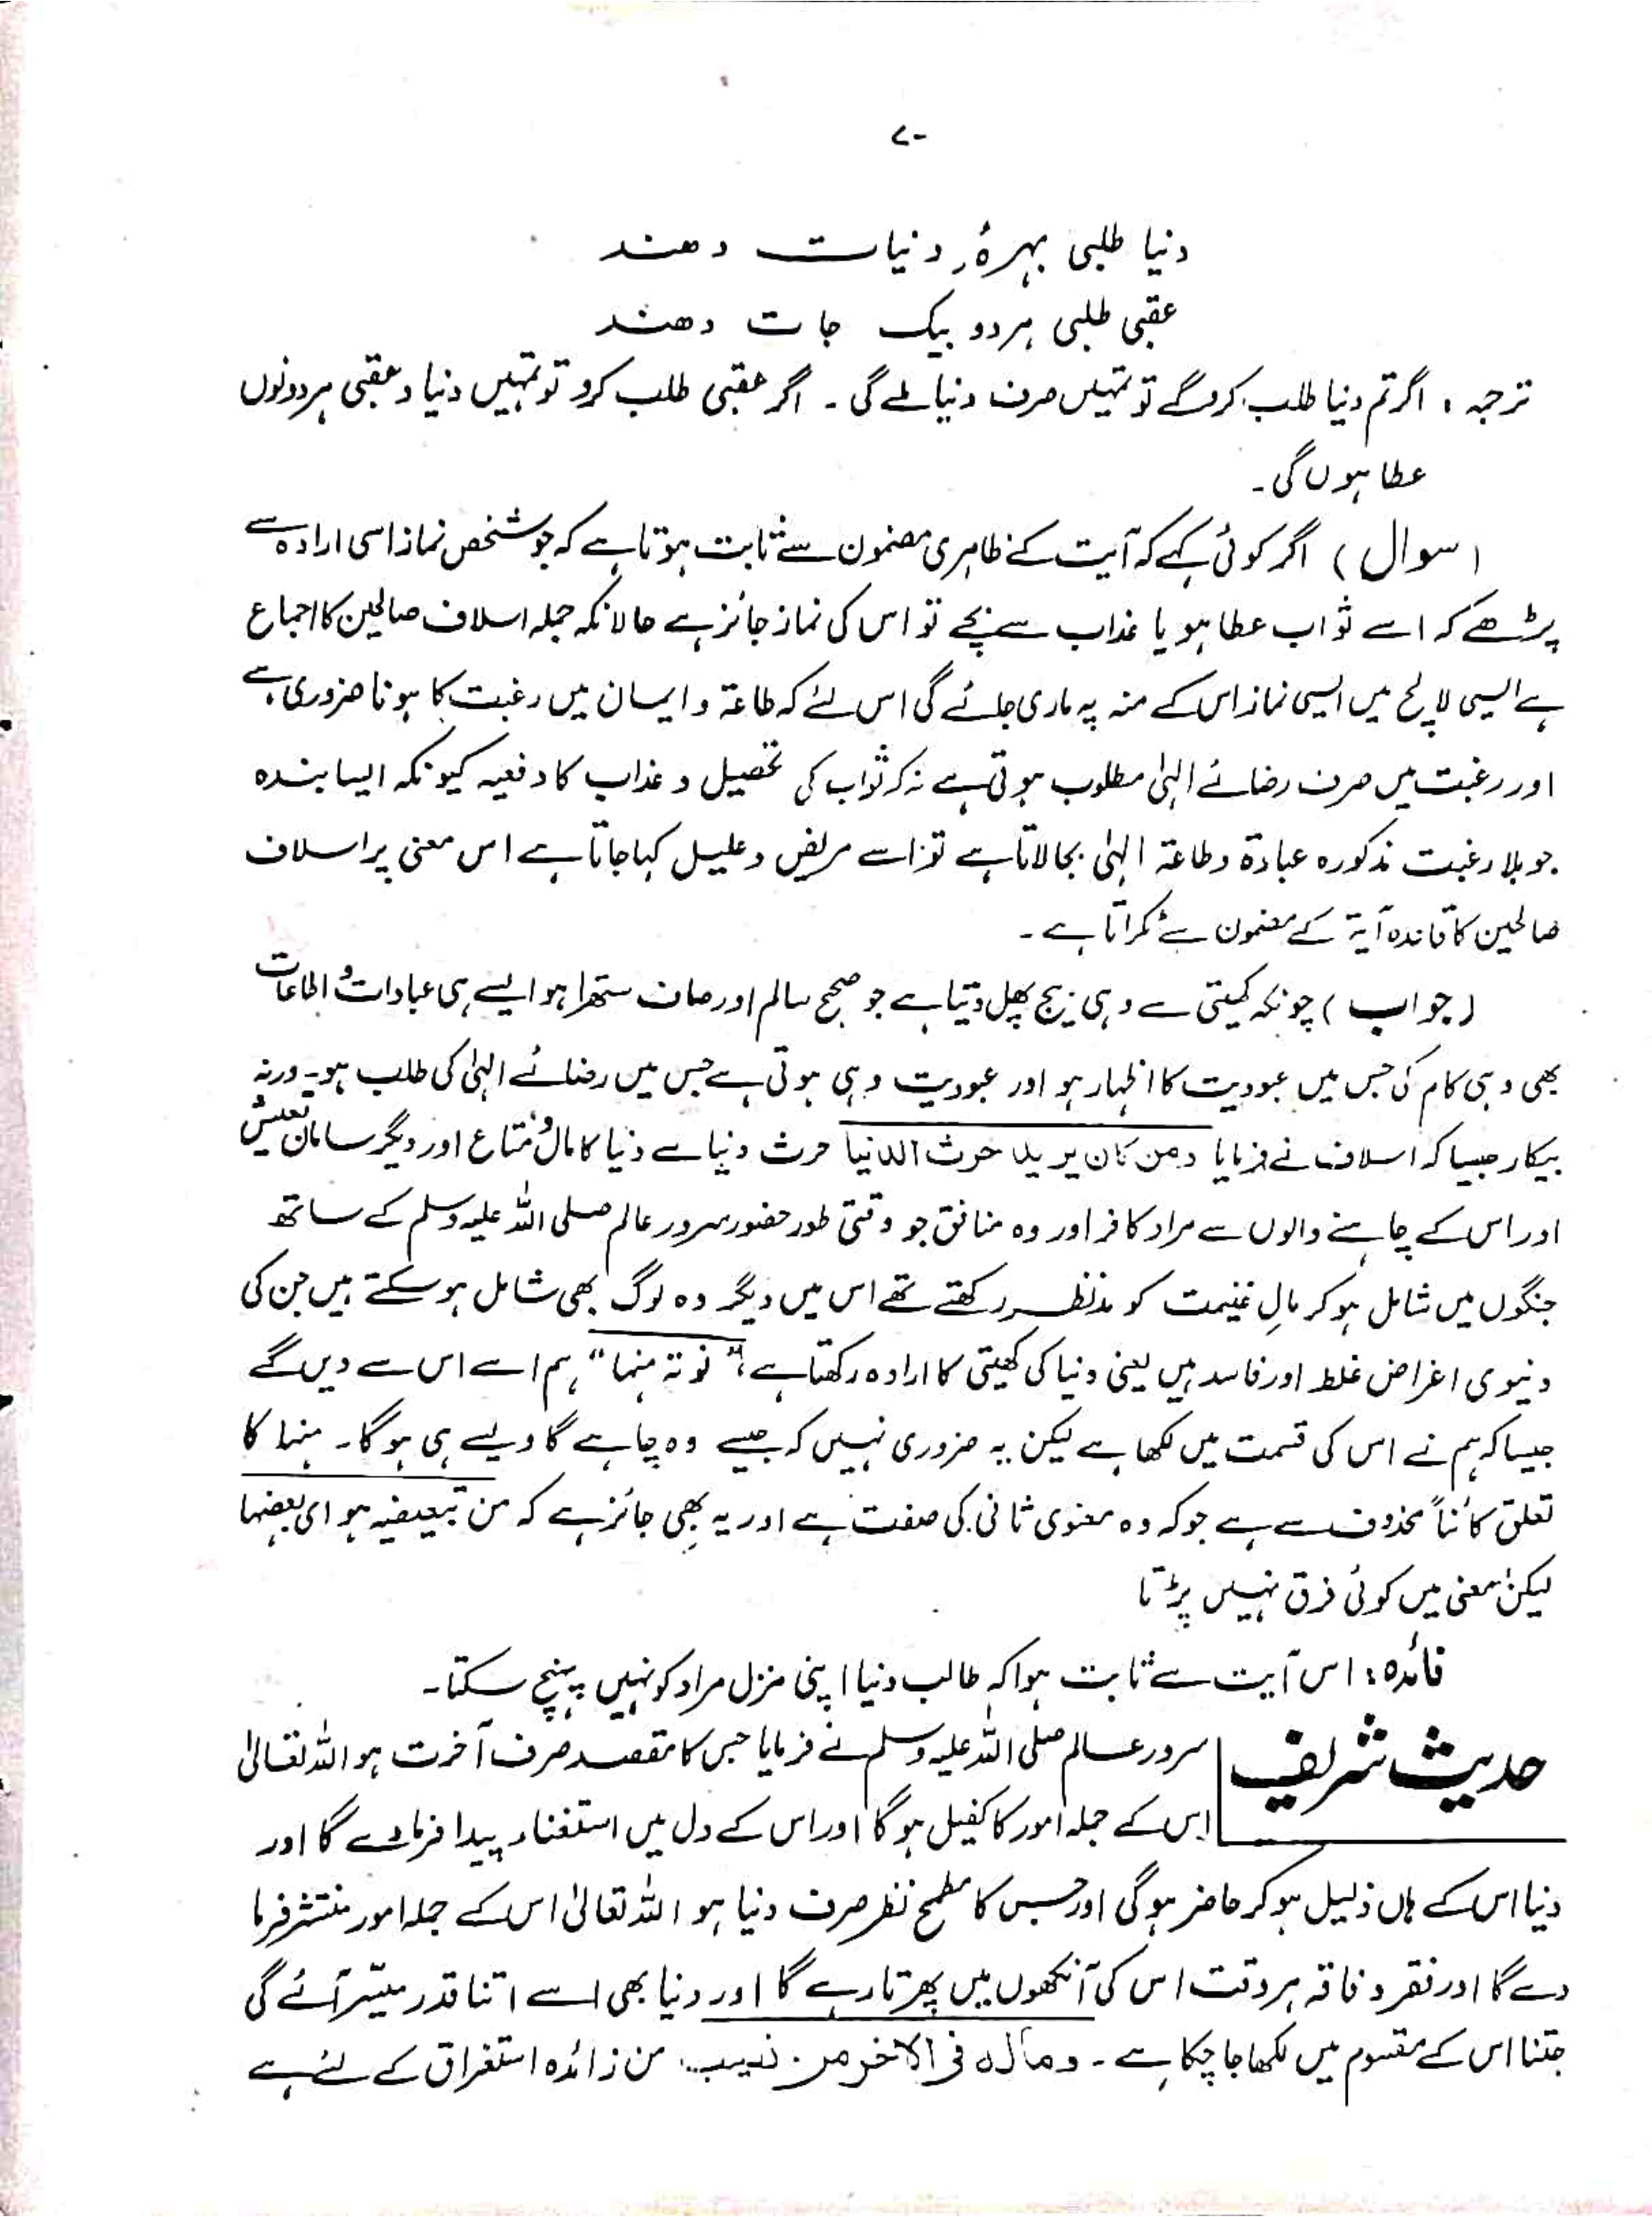 ۷۰
دنیا طلبی بہرۂ دنیات دھند
عقبی طلبی ہردو بیک جات دھند
ترجمہ ، اگر تم دنیا طلب کروگے تو تمہیں صرف دنیا ملے گی ۔ اگر عقبی طلب کرو تو تمہیں دنیا و عقبی ہر دونوں
عطا ہوں گی ۔
(سوال) اگر کوئی کہے کہ آیت کے ظاہری مضمون سے ثابت ہوتا ہے کہ جو شخص نماز اسی ارادہ سے
پڑھے کہ اسے ثواب عطا ہو یا عذاب سے بچے تو اس کی نماز جائز ہے حالانکہ جملہ اسلاف صالحین کا اجماع
ہے ایسی لالچ میں ایسی نماز اس کے منہ پہ ماری جائے گی اس لئے کہ طاعۃ و ایمان میں رغبت کا ہونا ضروری ہے
اور رغبت میں صرف رضائے الہیٰ مطلوب ہوتی ہے نہ کہ ثواب کی تحصیل و عذاب کا دفعیہ کیونکہ ایسا بندہ
جو بلا رغبت مذکورہ عبادۃ و طاعۃ الہیٰ بجالاتا ہے تو اسے مریض و علیل کہا جاتا ہے اس معنی پر اسلاف
صالحین کا قاعدہ آیۃ کے مضمون سے ٹکراتا ہے ۔
(جواب) چونکہ کھیتی سے وہی بیج پھل دیتا ہے جو صحیح سالم اور صاف ستھرا ہو ایسے ہی عبادات و اطاعات
بھی وہی کام کی جس میں عبودیت کا اظہار ہو اور عبودیت وہی ہوتی ہے جس میں رضائے الہیٰ کی طلب ہو ۔ ورنہ
بیکار جیسا کہ اسلاف نے فرمایا ومن کان یرید حرث الدنیا حرث دنیا سے دنیا کا مال و متاع اور دیگر سامان تعیش
اور اس کے چاہنے والوں سے مراد کافر اور وہ منافق جو وقتی طور حضور سرور عالم صلی اللہ علیہ وسلم کے ساتھ
جنگوں میں شامل ہو کر مالِ غنیمت کو مدنظر رکھتے تھے اس میں دیگر وہ لوگ بھی شامل ہوسکتے ہیں جن کی
دنیوی اغراض غلط اور فاسد ہیں یعنی دنیا کی کھیتی کا ارادہ رکھتا ہے ، "نوتہ منہا" ہم اسے اس سے دیں گے
جیسا کہ ہم نے اس کی قسمت میں لکھا ہے لیکن یہ ضروری نہیں کہ جیسے وہ چاہے گا ویسے ہی ہوگا ۔ منہا کا
تعلق کائناً محذوف سے ہے جوکہ وہ معنوی ثانی کی صفت ہے اور یہ بھی جائز ہے کہ من تبعیضیہ ہو ای بعضہا
لیکن معنی میں کوئی فرق نہیں پڑتا
فائدہ : اس آیت سے ثابت ہوا کہ طالب دنیا اپنی منزل مراد کو نہیں پہنچ سکتا ۔
حدیث شریف سرور عالم صلی اللہ علیہ وسلم نے فرمایا جس کا مقصد صرف آخرت ہو اللہ تعالیٰ
اس کے جملہ امور کا کفیل ہوگا اور اس کے دل میں استغناء پیدا فرما دے گا اور
دنیا اس کے ہاں ذلیل ہوکر حاضر ہوگی اور جس کا مطمح نظر صرف دنیا ہو اللہ تعالیٰ اس کے جملہ امور منتشر فرما
دے گا اور فقر و فاقہ ہر وقت اس کی آنکھوں میں پھرتا رہے گا اور دنیا بھی اسے اتنا قدر میسّر آئے گی
جتنا اس کے مقسوم میں لکھا جا چکا ہے ۔ ومالہ فی الاخر من نصیب ۔ من زائدہ استغراق کے لئے ہے